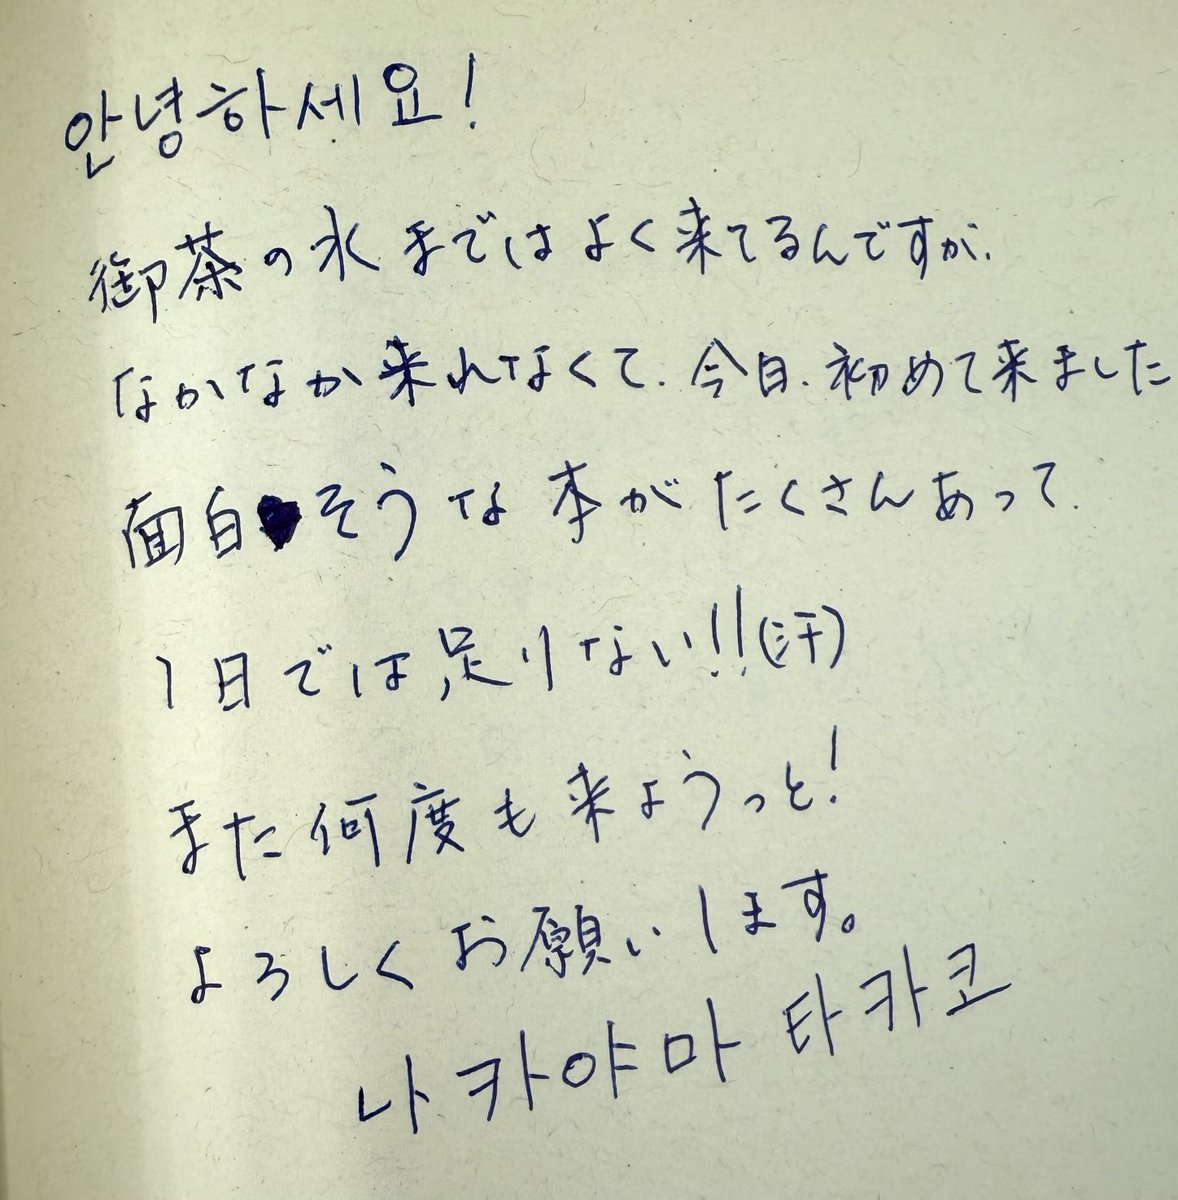 안녕하세요!
御茶の水まではよく来てるんですが、
なかなか来れなくて、今日、初めて来ました
面白そうな本がたくさんあって、
1日では足りない!!(汗)
また何度も来ようっと!
よろしくお願いします。
나카야마 타카코